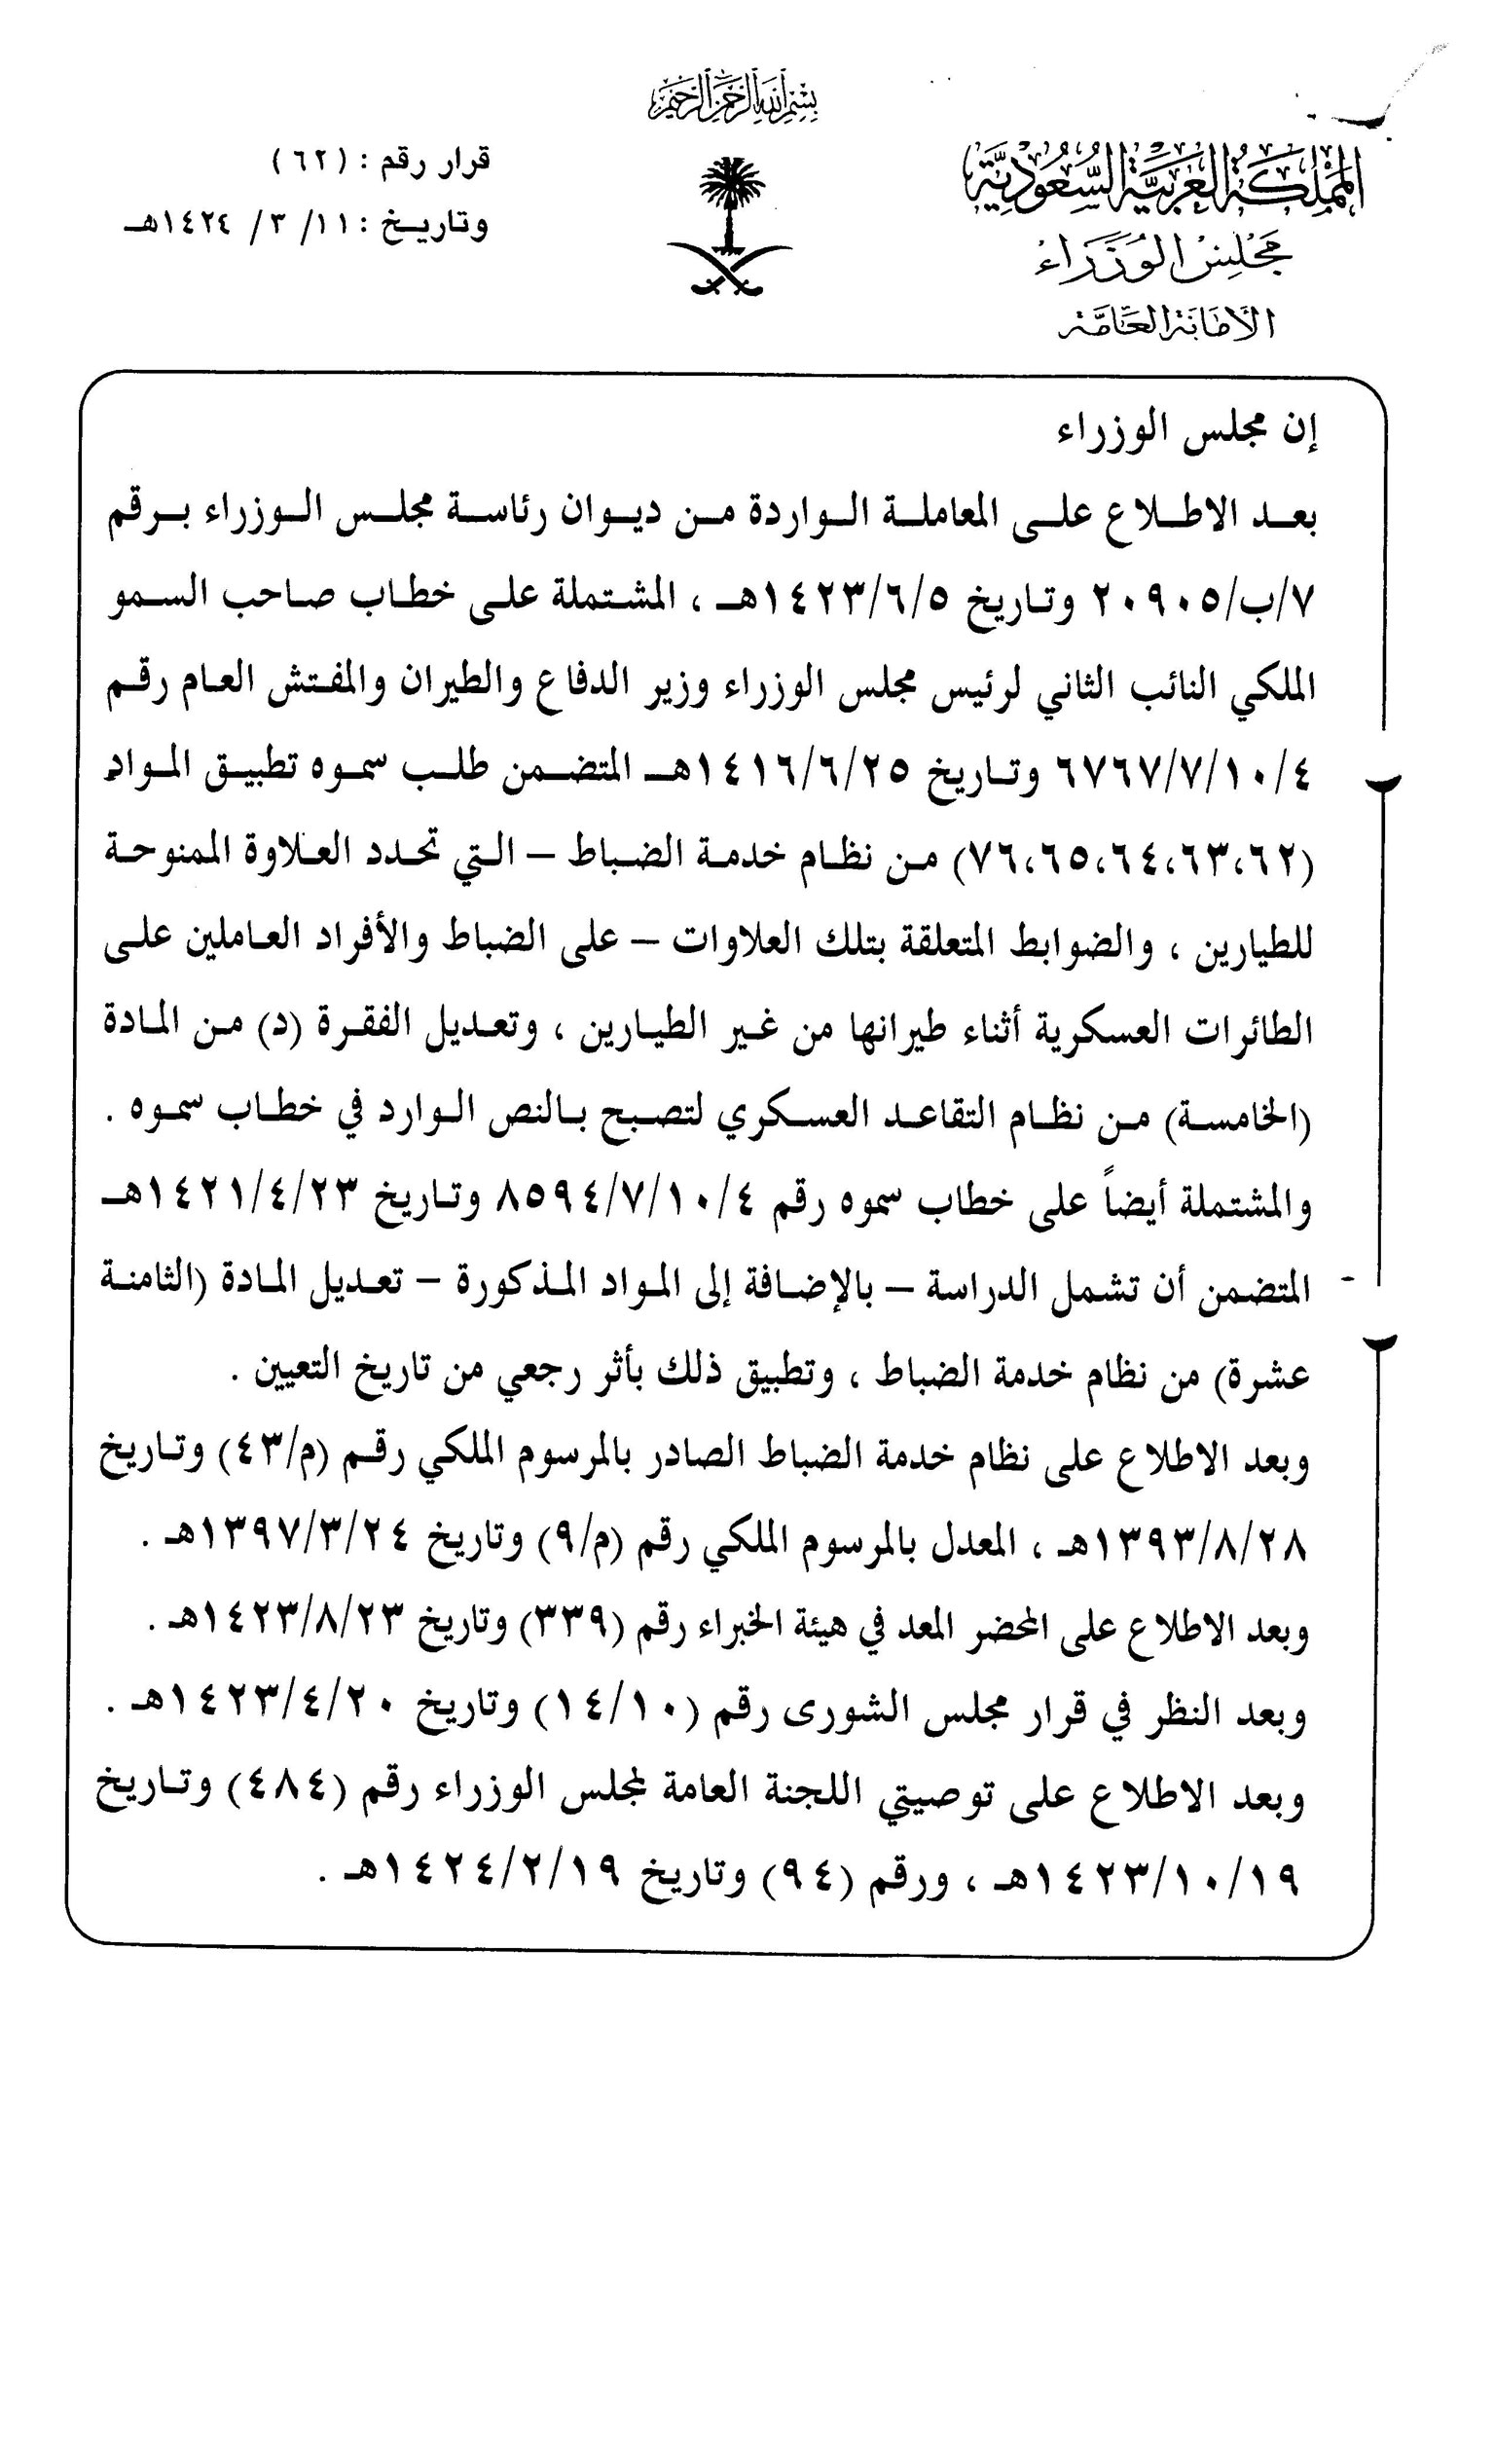 بسم الله الرحمن الرحيم
المملكة العربية السعودية
مجلس الوزراء
الأمانة العامة
قرار رقم : (٦٢)
وتاريخ : ١١/ ٣/ ١٤٢٤هـ
إن مجلس الوزراء
بعد الاطلاع على المعاملة الواردة من ديوان رئاسة مجلس الوزراء برقم
٧/ب/٢٠٩٠٥ وتاريخ ١٤٢٣/٦/٥هـ ، المشتملة على خطاب صاحب السمو
الملكي النائب الثاني لرئيس مجلس الوزراء وزير الدفاع والطيران والمفتش العام رقم
٦٧٦٧/٧/١٠/٤ وتاريخ ١٤١٦/٦/٢٥هـ المتضمن طلب سموه تطبيق المواد
(٧٦،٦٥،٦٤،٦٣،٦٢) من نظام خدمة الضباط – التي تحدد العلاوة الممنوحة
للطيارين ، والضوابط المتعلقة بتلك العلاوات – على الضباط والأفراد العاملين على
الطائرات العسكرية أثناء طيرانها من غير الطيارين ، وتعديل الفقرة (د) من المادة
(الخامسة) من نظام التقاعد العسكري لتصبح بالنص الوارد في خطاب سموه .
والمشتملة أيضاً على خطاب سموه رقم ٨٥٩٤/٧/١٠/٤ وتاريخ ١٤٢١/٤/٢٣هـ
المتضمن أن تشمل الدراسة – بالإضافة إلى المواد المذكورة – تعديل المادة (الثامنة
عشرة) من نظام خدمة الضباط ، وتطبيق ذلك بأثر رجعي من تاريخ التعيين .
وبعد الاطلاع على نظام خدمة الضباط الصادر بالمرسوم الملكي رقم (م/٤٣) وتاريخ
١٣٩٣/٨/٢٨هـ ، المعدل بالمرسوم الملكي رقم (م/٩) وتاريخ ١٣٩٧/٣/٢٤هـ .
وبعد الاطلاع على المحضر المعد في هيئة الخبراء رقم (٣٣٩) وتاريخ ١٤٢٣/٨/٢٣هـ .
وبعد النظر في قرار مجلس الشورى رقم (١٤/١٠) وتاريخ ١٤٢٣/٤/٢٠هـ .
وبعد الاطلاع على توصيتي اللجنة العامة لمجلس الوزراء رقم (٤٨٤) وتاريخ
١٤٢٣/١٠/١٩هـ ، ورقم (٩٤) وتاريخ ١٤٢٤/٢/١٩هـ .